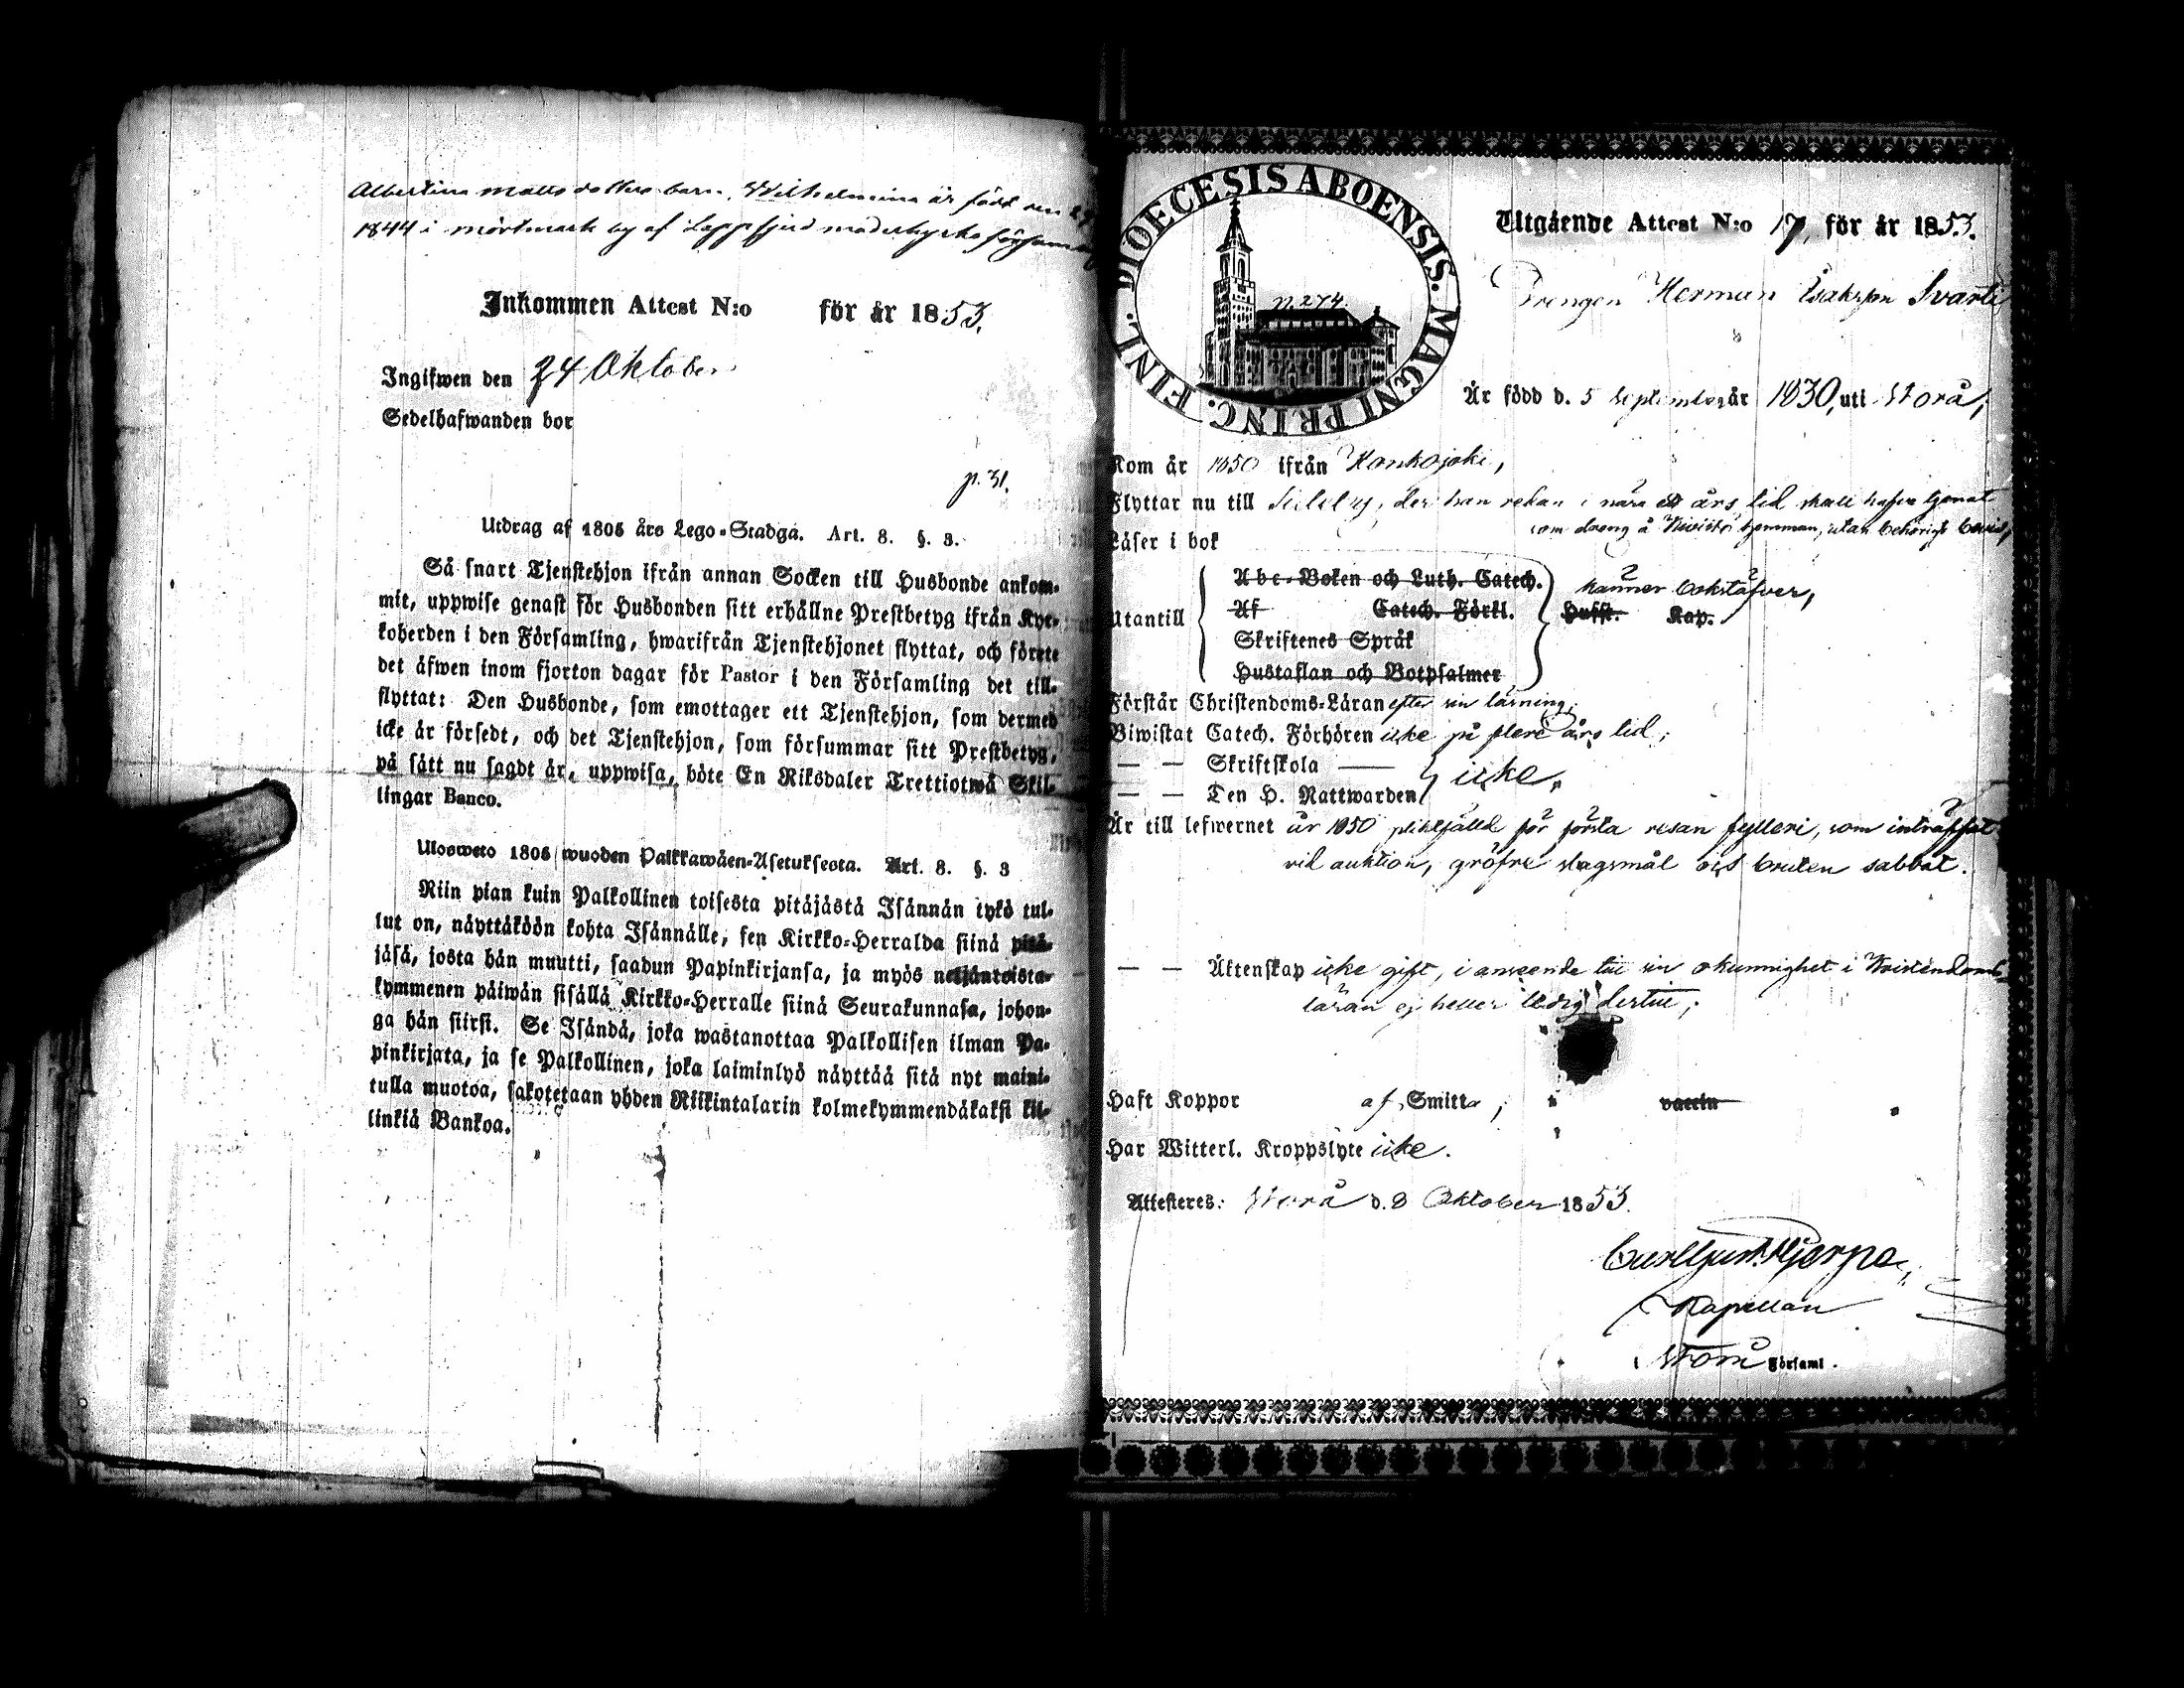 Albertina Mattsdotters barn, Wilhelmina är född den 24
1844 i Mörtmark by af Lappfjerd moderkyrko församling
Inkommen Attest N:o för år 1853.
Ingifwen den 24 Oktober
Sedelhafwanden bor
p. 31.
Utdrag af 1805 års Lego-Stadga. Art. 8. §. 3.
Så snart Tjenstehjon ifrån annan Socken till Husbonde ankom-
mit, uppwise genast för Husbonden sitt erhållne Prestbetyg ifrån Kyr-
koherden i den Församling, hwarifrån Tjenstehjonet flyttat, och förete
det äfwen inom fjorton dagar för Pastor i den Församling det till-
flyttat: Den Husbonde, som emottager ett Tjenstehjon, som dermed
icke är försedt, och det Tjenstehjon, som försummar sitt Prestbetyg,
på sätt nu sagdt är, uppwisa, böte En Riksdaler Trettiotwå Skil-
lingar Banco.
Ulosweto 1805 wuoden Palkkawäen-Asetuksesta. Art. 8. §. 3
Niin pian kuin Palkollinen toisesta pitäjästä Isännän tykö tul-
lut on, näyttäköön kohta Isännälle, sen Kirkko-Herralda siinä pitä-
jäsä, josta hän muutti, saadun Papinkirjansa, ja myös neljäntoista-
kymmenen päiwän sisällä Kirkko-Herralle siinä Seurakunnasa, johon-
ga hän siirsi. Se Isändä, joka wastanottaa Palkollisen ilman Pa-
pinkirjata, ja se Palkollinen, joka laiminlyö näyttää sitä nyt maini-
tulla muotoa, sakotetaan yhden Riikintalarin kolmekymmendäkaksi kil-
linkiä Bankoa.
DIOECESIS ABOENSIS. MAGNI PRINC. FINL.
p. 274.
Utgående Attest N:o 17, för år 1853.
Drengen Herman Isaksson Svarti
Är född d. 5 September år 1830, uti Storå,
Kom år 1850 ifrån Honkajoki,
Flyttar nu till Sideby, der han redan i nära ett års tid skall hafva tjenat
som dreng å Kivistö hemman, utan behörigt bevis,
Läser i bok
Abc-Boken och Luth. Catech. känner bokstäfver,
Utantill Af Catech. Förkl. Husst. Kap.
Skriftenes Språk
Hustaflan och Botpsalmer
Förstår Christendoms-Läran efter sin läsning;
Biwistat Catech. Förhören icke på flere års tid;
— — Skriftskola — icke,
— — Den H. Nattwarden
Är till lefwernet år 1850 pliktfälld för första resan fylleri, som inträffat
vid auktion, gröfre slagsmål och bruten sabbat.
— — Äktenskap icke gift, i anseende till sin okunnighet i Kristendoms
läran ej heller ledig dertill;
Haft Koppor af Smitta; vaccin
Har Witterl. Kroppslyte icke.
Attesteres: Storå d. 8 Oktober 1853.
Carl Gust. Hjerpe,
Kapellan
i Storå Församl.